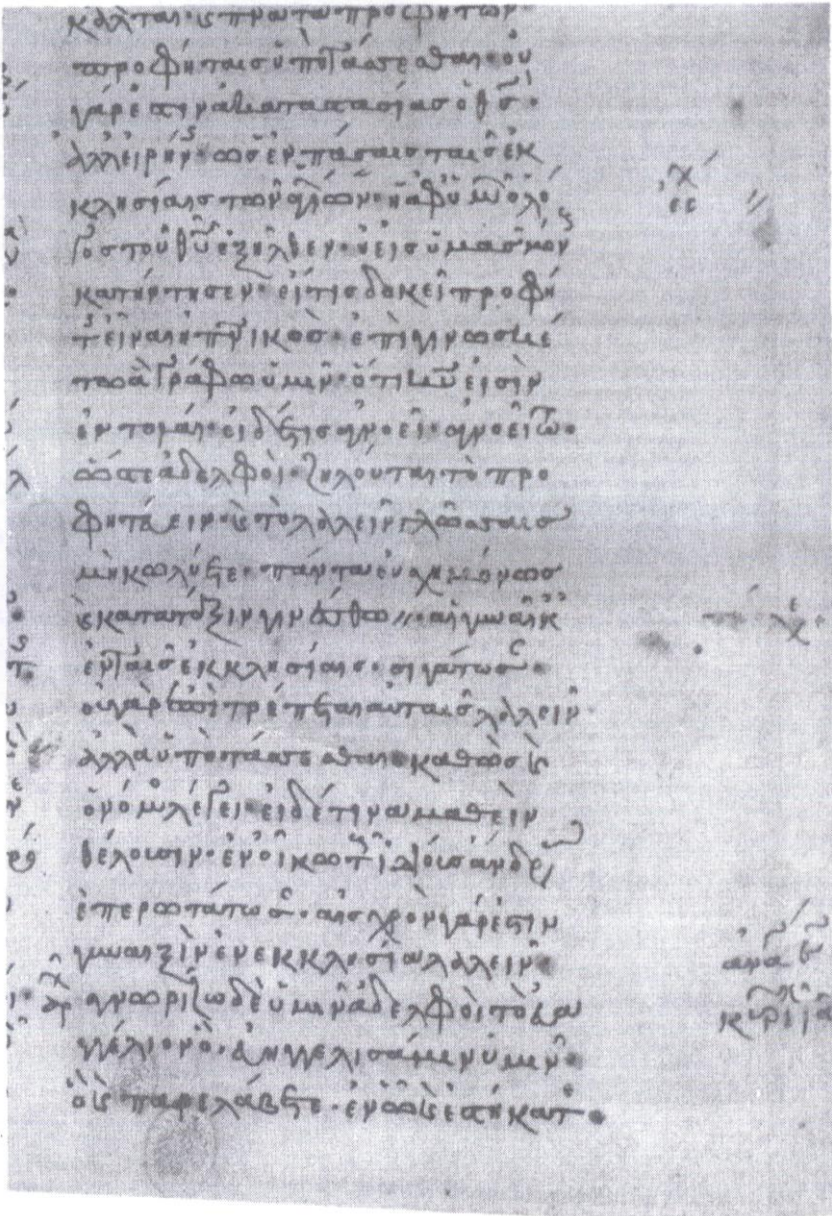 καλῆται· ϗ πνατα προφητῶν·
προφήταις ὑποτάσσεσθαι· οὐ
γάρ ἐστιν ἀκαταστασίας ὁ θς·
ἀλλ εἰρήνης· ὡς ἐν πάσαις ταῖς ἐκ
κλησίαις τῶν ἁγίων· ἢ ἀφ ὑμῶν ὁ λό
γος τοῦ θυ ἐξῆλθεν· ἢ εἰς ὑμᾶς μόνους
κατήντησεν· εἴ τις δοκεῖ προφή
της εἶναι ἢ πνικὸς· ἐπιγινωσκέ
τω ἃ γράφω ὑμῖν· ὅτι κυ εἰσὶν
ἐντολαί· εἰ δέ τις ἀγνοεῖ· ἀγνοείτω·
ὥστε ἀδελφοὶ· ζηλοῦται τὸ προ
φητεύειν· ϗ τὸ λαλεῖν γλώσσαις
μὴ κωλύετε· πάντα εὐσχημόνως
ϗ κατὰ τάξιν γινέσθω // αἱ γυναῖκες
ἐν ταῖς ἐκκλησίαις· σιγάτωσαν·
οὐ γὰρ ἐπιτρέπεται αὐταῖς λαλεῖν·
ἀλλὰ ὑποτάσσεσθαι· καθὼς ϗ
ὁ νόμος λέγει· εἰ δέ τινα μαθεῖν
θέλουσιν· ἐν οἴκω τοὺς ἰδίους ἄνδρας
ἐπερωτάτωσαν· αἰσχρὸν γάρ ἐστιν
γυναιξὶν ἐν ἐκκλησία λαλεῖν·
γνωρίζω δὲ ὑμῖν ἀδελφοὶ τὸ εὐα
γγέλιον ὃ εὐηγγελισάμην ὑμῖν·
ὃ ϗ παρελάβετε· ἐν ὧ ϗ ἑστήκατε·